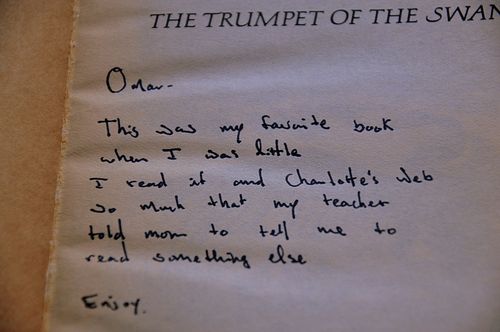 THE TRUMPET OF THE SWAN
Omar-
This was my favorite book
when I was little
I read it and Charlotte's Web
so much that my teacher
told mom to tell me to
read something else
Enjoy.